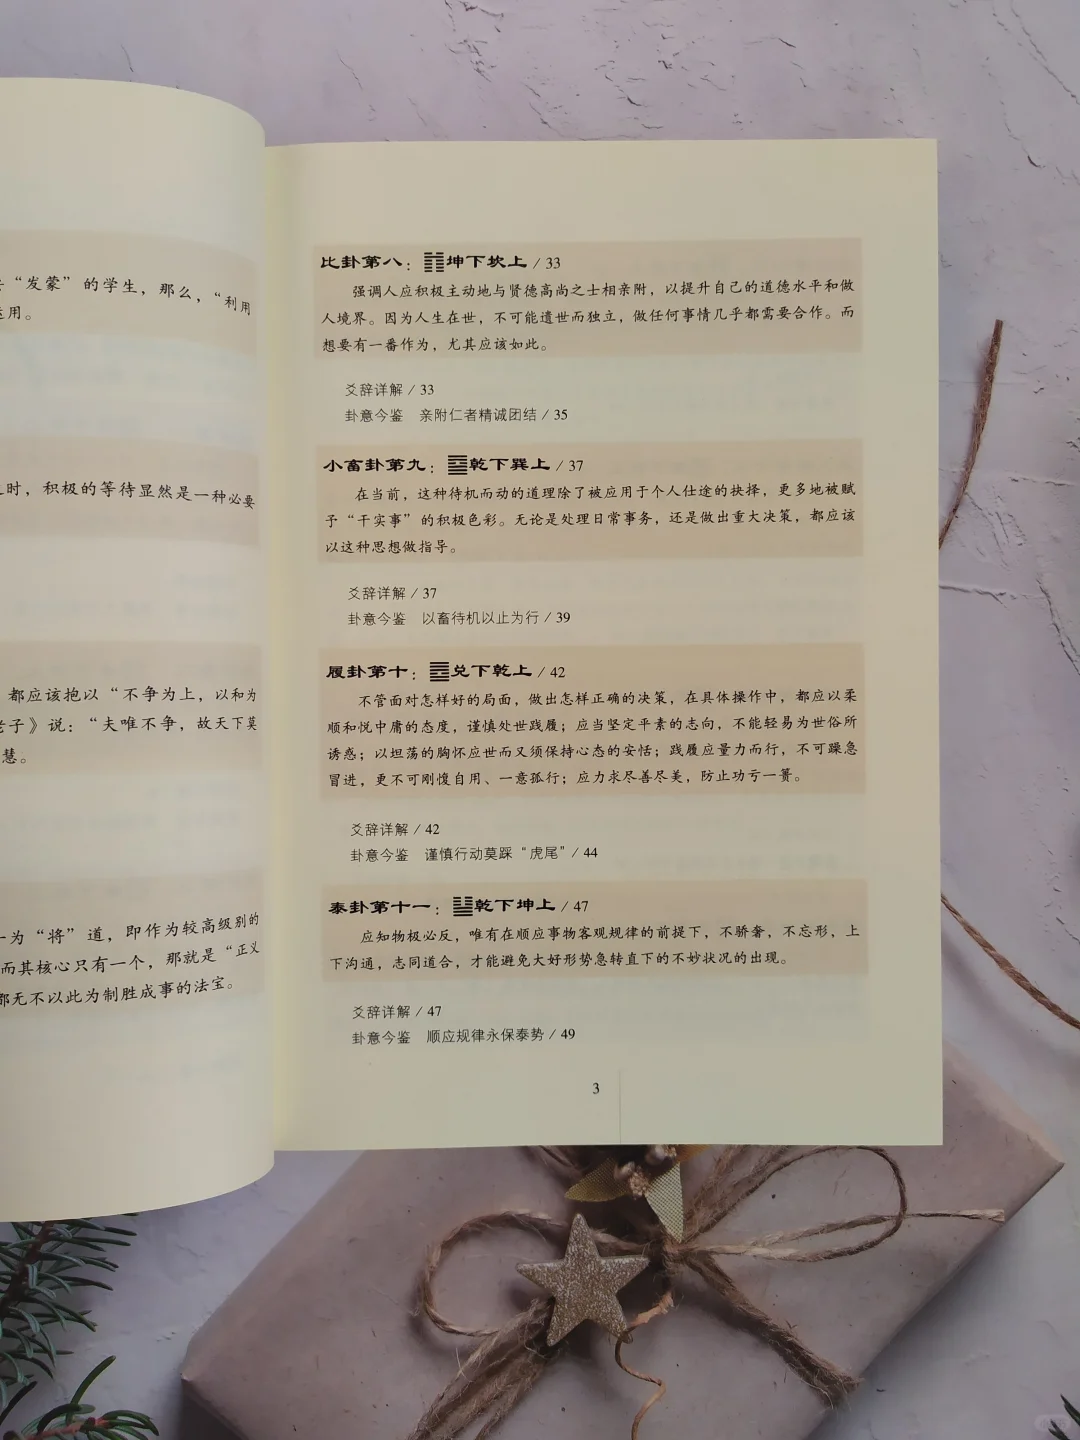 “发蒙”的学生，那么，“利用
运用。
时，积极的等待显然是一种必要
都应该抱以“不争为上，以和为
老子》说：“夫唯不争，故天下莫
慧。
一为“将”道，即作为较高级别的
而其核心只有一个，那就是“正义
都无不以此为制胜成事的法宝。
比卦第八：䷇坤下坎上 / 33
强调人应积极主动地与贤德高尚之士相亲附，以提升自己的道德水平和做
人境界。因为人生在世，不可能遗世而独立，做任何事情几乎都需要合作。而
想要有一番作为，尤其应该如此。
爻辞详解 / 33
卦意今鉴 亲附仁者精诚团结 / 35
小畜卦第九：䷈乾下巽上 / 37
在当前，这种待机而动的道理除了被应用于个人仕途的抉择，更多地被赋
予“干实事”的积极色彩。无论是处理日常事务，还是做出重大决策，都应该
以这种思想做指导。
爻辞详解 / 37
卦意今鉴 以畜待机以止为行 / 39
履卦第十：䷉兑下乾上 / 42
不管面对怎样好的局面，做出怎样正确的决策，在具体操作中，都应以柔
顺和悦中庸的态度，谨慎处世践履；应当坚定平素的志向，不能轻易为世俗所
诱惑；以坦荡的胸怀应世而又须保持心态的安恬；践履应量力而行，不可躁急
冒进，更不可刚愎自用、一意孤行；应力求尽善尽美，防止功亏一篑。
爻辞详解 / 42
卦意今鉴 谨慎行动莫踩“虎尾” / 44
泰卦第十一：䷊乾下坤上 / 47
应知物极必反，唯有在顺应事物客观规律的前提下，不骄奢，不忘形，上
下沟通，志同道合，才能避免大好形势急转直下的不妙状况的出现。
爻辞详解 / 47
卦意今鉴 顺应规律永保泰势 / 49
3